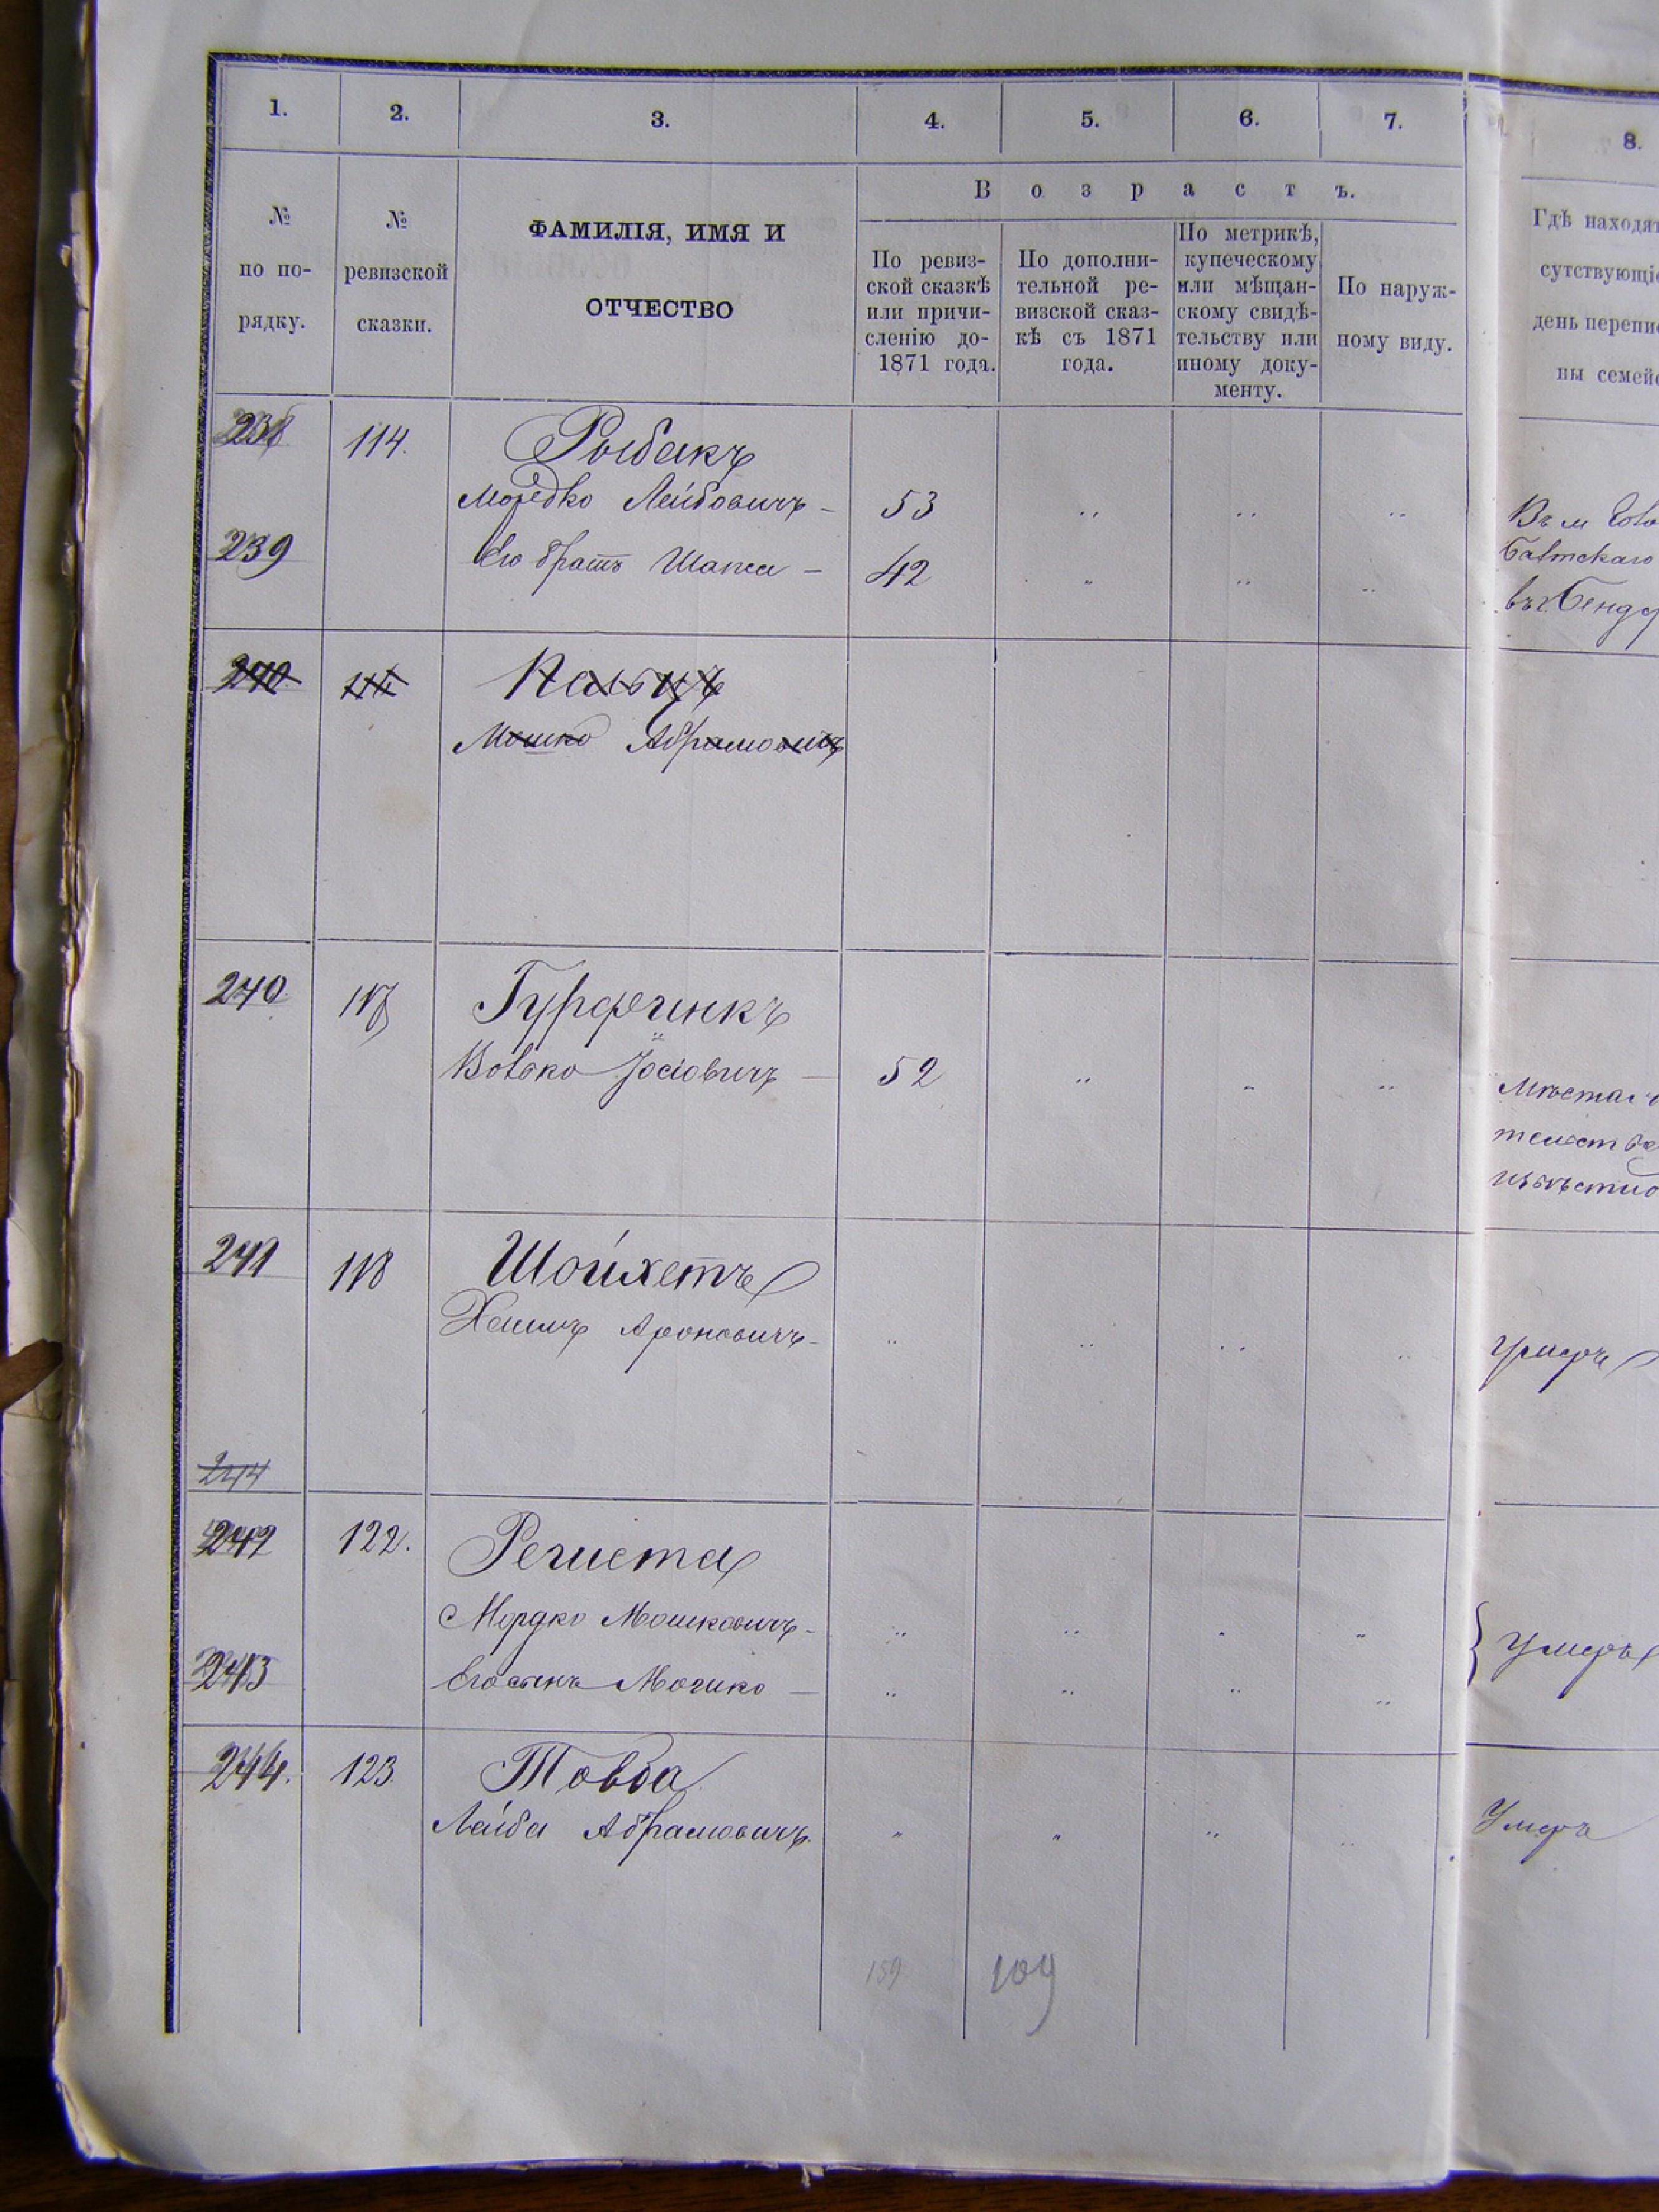 1. 2. 3. 4. 5. 6. 7. 8.
№ по по-рядку.
№ ревизской сказки.
ФАМИЛІЯ, ИМЯ И
ОТЧЕСТВО
Возрастъ.
По ревиз-
ской сказкѣ
или причи-
сленію до-
1871 года.
По дополни-
тельной ре-
визской сказ-
кѣ съ 1871
года.
По метрикѣ,
купеческому
или мѣщан-
скому свидѣ-
тельству или
иному доку-
менту.
По наруж-
ному виду.
Гдѣ находят
сутствующіе
день перепис
ны семейс
238 114. Рыбакъ
Мордко Лейбовичъ - 53 " " "
Въ м
239 Его братъ Шапса - 42 " " "
Балтскаго
въ г. Бендер
240 Пальцъ
Мошко Абрамовичъ
240 117 Гурфинкъ
Вовко Іосіовичъ - 52 " " "
241 118 Шойхетъ
Хаимъ Ароновичъ - " " " "
умеръ
244
242 122. Региста
Мордко Мошковичъ - " " " "
умеръ
243 Его сынъ Мошко - " " " "
244. 123. Товба
Лейба Абрамовичъ. " " " "
Умеръ
159 109